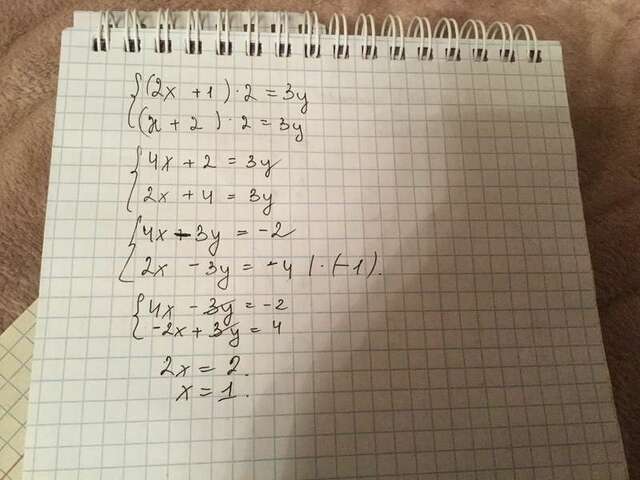 (2x + 1) · 2 = 3y
(x + 2) · 2 = 3y
4x + 2 = 3y
2x + 4 = 3y
4x - 3y = -2
2x - 3y = -4 | · (-1).
4x - 3y = -2
-2x + 3y = 4
2x = 2.
x = 1.